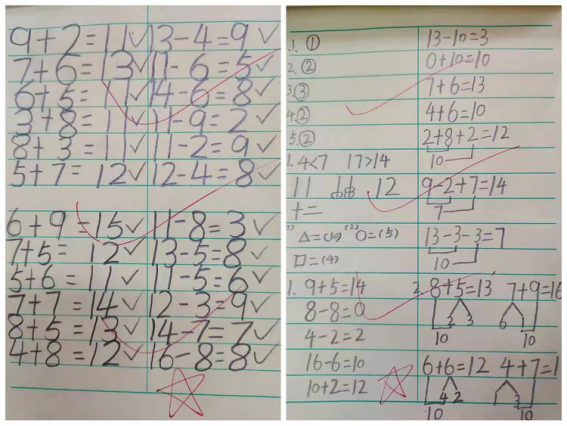 9+2=11 13-4=9
7+6=13 11-6=5
6+5=11 14-6=8
3+8=11 11-9=2
8+3=11 11-2=9
5+7=12 12-4=8
6+9=15 11-8=3
7+5=12 13-5=8
5+6=11 11-5=6
7+7=14 12-3=9
8+5=13 14-7=7
4+8=12 16-8=8
1. ①
2. ②
3. ③
4. ②
5. ②
1. 4<7 17>14
11 12
十二
(1) △=(10) (2) ○=(5)
□=(4)
1. 9+5=14
8-8=0
4-2=2
16-6=10
10+2=12
13-10=3
0+10=10
7+6=13
4+6=10
2+8+2=12
10
9-2+7=14
7
13-3-3=7
10
2. 8+5=13 7+9=16
2 3 6
10 10
6+6=12 4+7=1
4 2 3
10 10